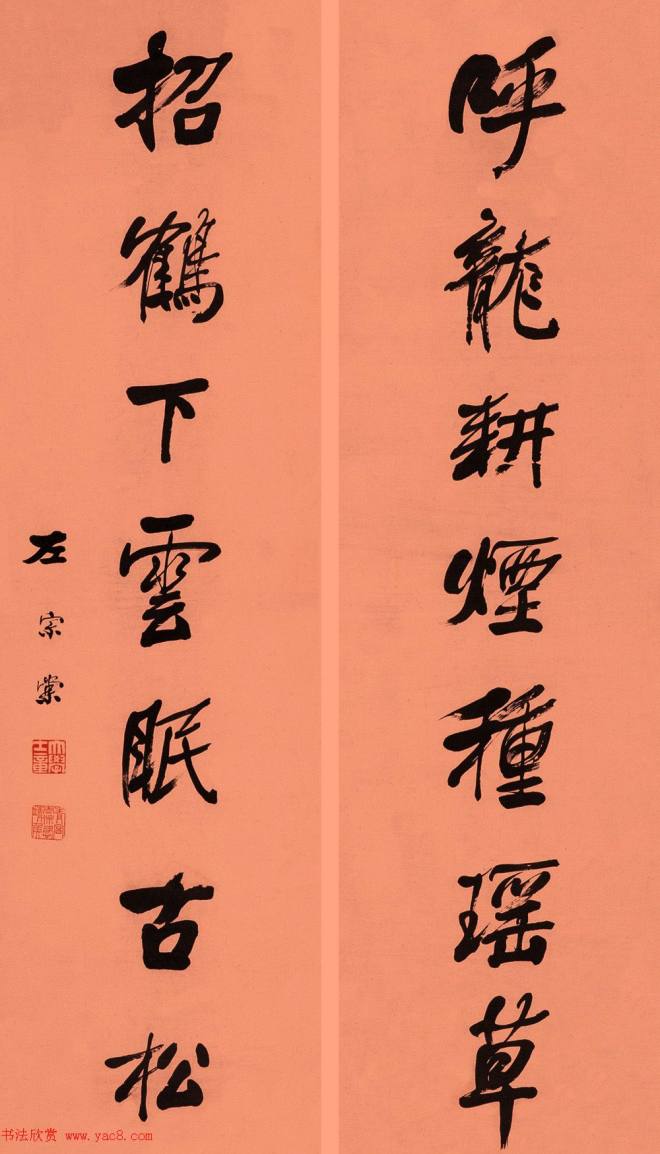 呼龍耕煙種瑶草
招鶴下雲眠古松
左宗棠
大學士章
书法欣赏 www.yac8.com